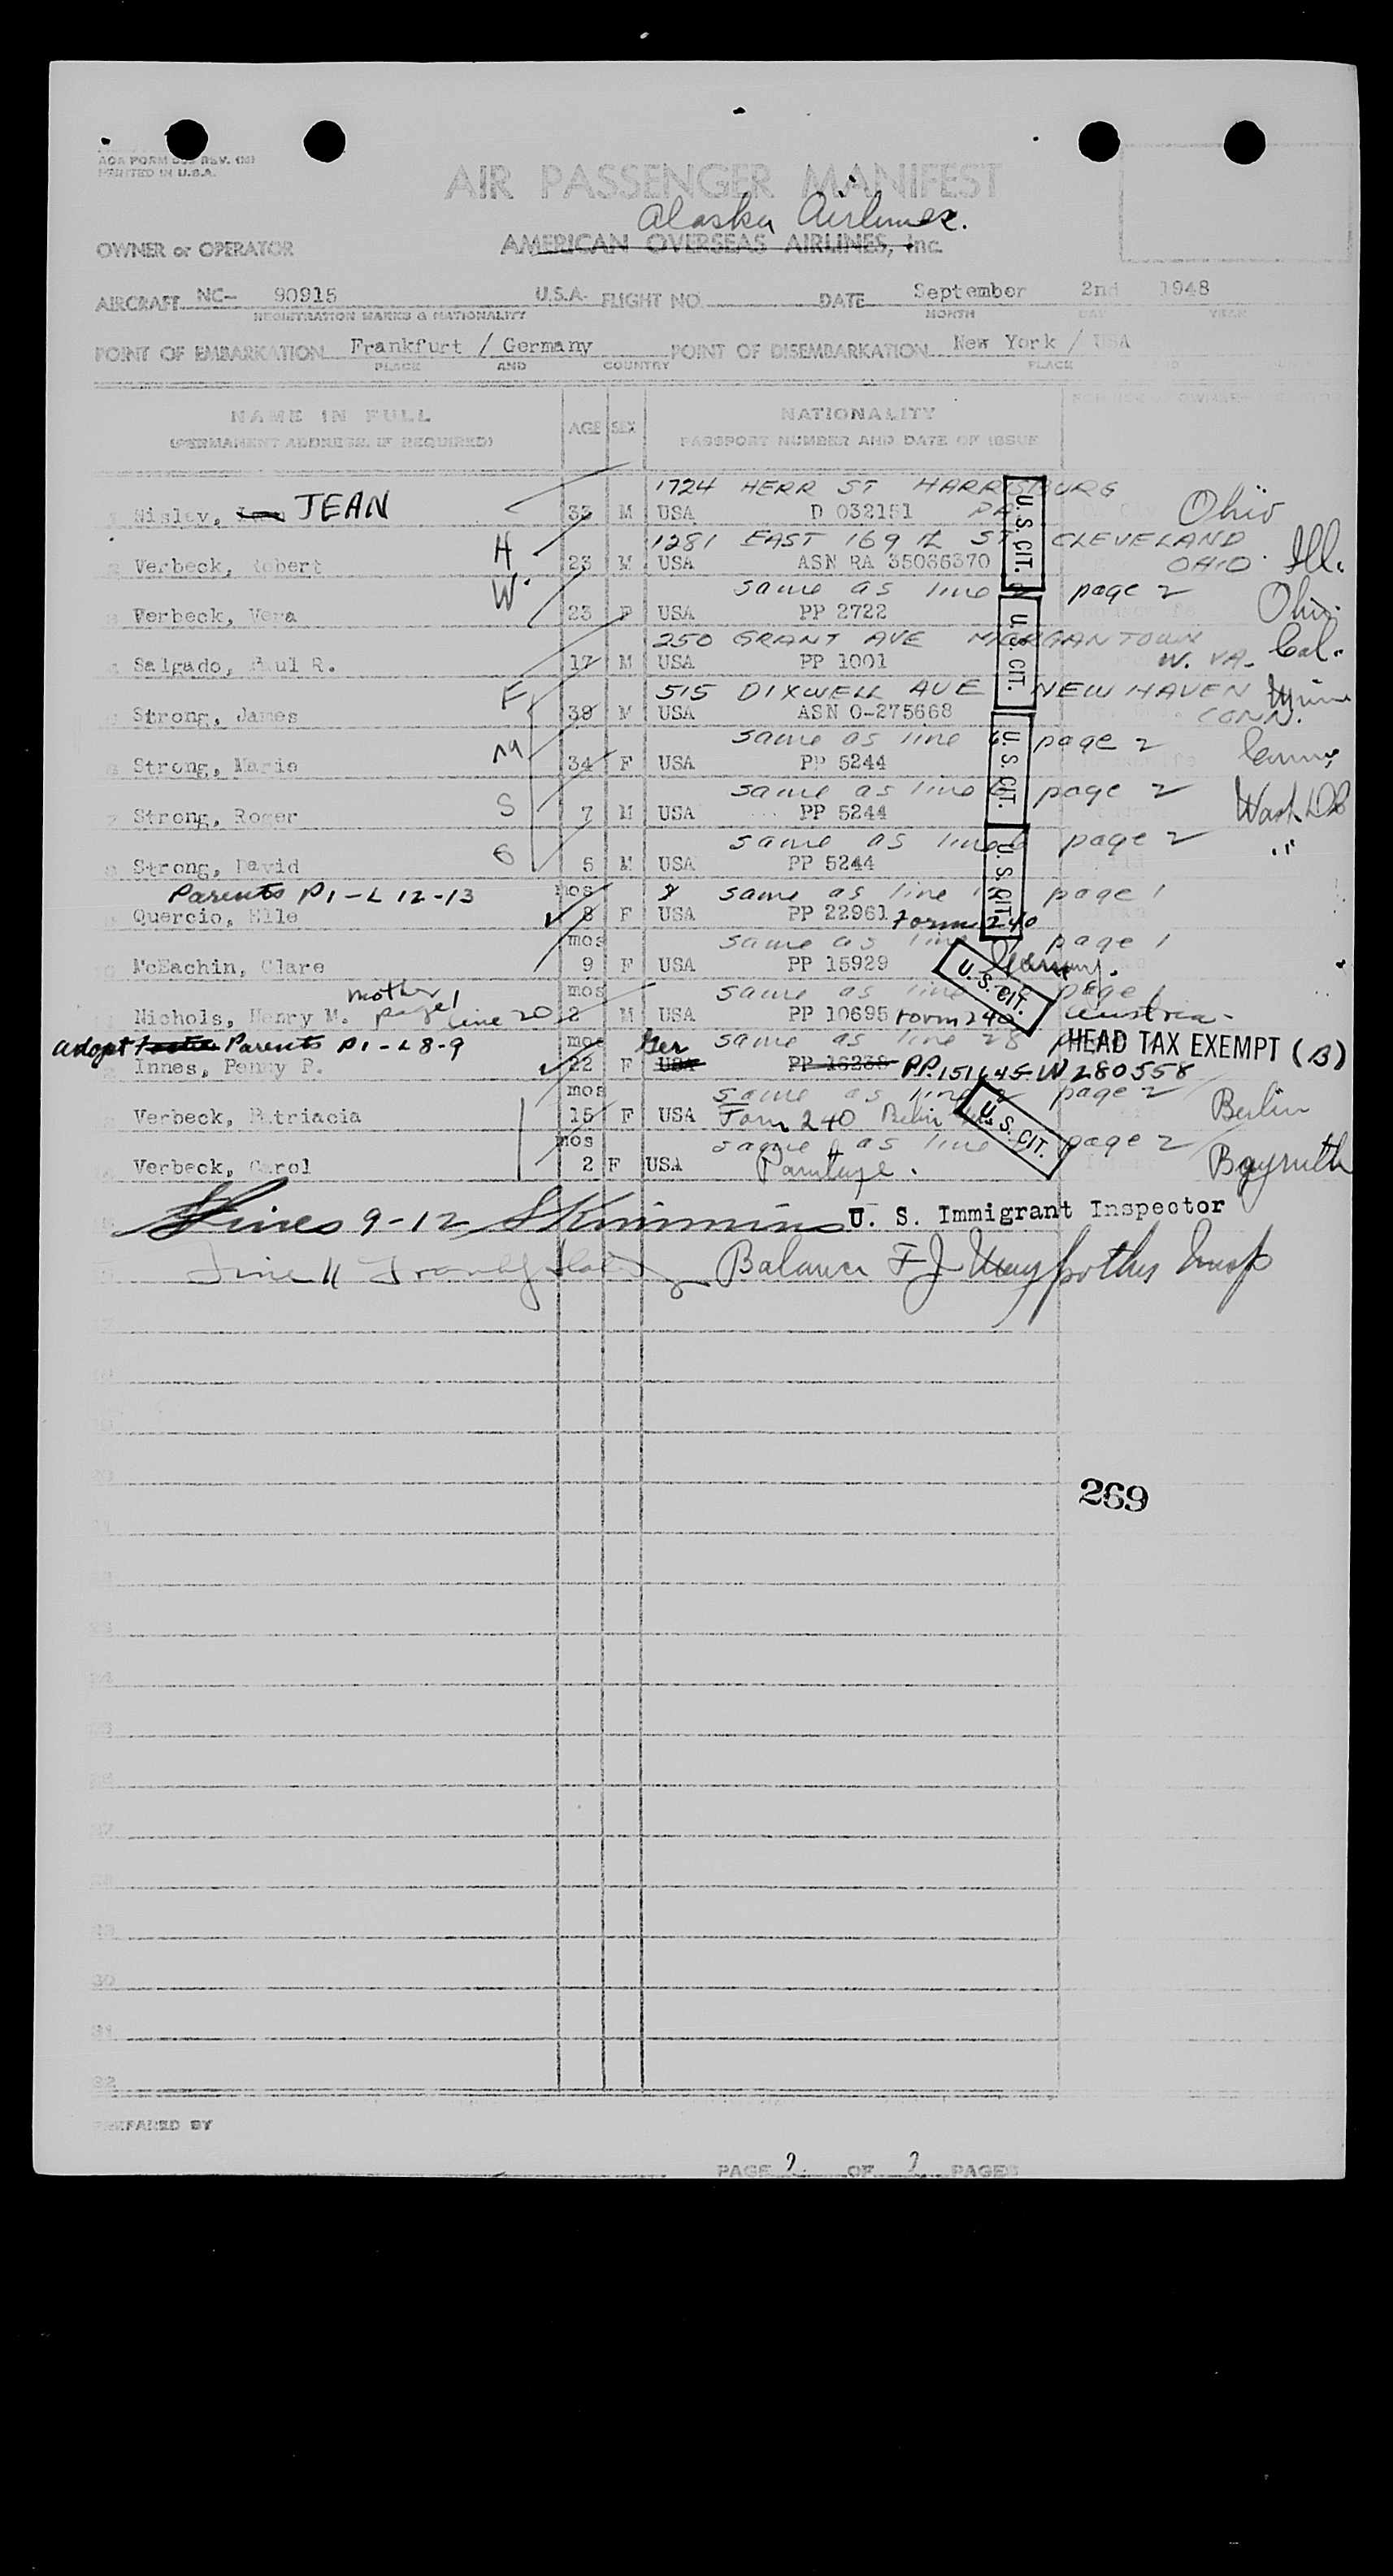 PRINTED IN U.S.A.
AIR PASSENGER MANIFEST
Alaska Airlines.
OWNER or OPERATOR AMERICAN OVERSEAS AIRLINES, Inc.
AIRCRAFT NC- 90915 U.S.A. FLIGHT NO DATE September 2nd 1948
REGISTRATION MARKS & NATIONALITY MONTH DAY YEAR
POINT OF EMBARKATION Frankfurt / Germany POINT OF DISEMBARKATION New York / USA
PLACE AND COUNTRY PLACE
NAME IN FULL AGE SEX NATIONALITY
(PERMANENT ADDRESS, IF REQUIRED) PASSPORT NUMBER AND DATE OF ISSUE
1724 HERR ST HARRISBURG
JEAN 33 M USA D 032151 PA Ohio
H 1281 EAST 169 ST CLEVELAND
Verbeck, Robert 23 M USA ASN RA 35036370 OHIO Ill.
W same as line 2 page 2
Verbeck, Vera 23 F USA PP 2722 Ohio
250 GRANT AVE MORGANTOWN
Salgado, Paul R. 17 M USA PP 1001 W. VA. Cal.
F 515 DIXWELL AVE NEW HAVEN
Strong, James 38 M USA ASN O-275668 CONN.
M same as line page 2
Strong, Marie 34 F USA PP 5244
same as line page 2
Strong, Roger S 7 M USA PP 5244 Wash DC
same as line page 2
Strong, David 5 M USA PP 5244 "
Parents P1-L 12-13 mos same as line page 1
Quercio, Elle 8 F USA PP 22961 Form 240
mos same as line page 1
McEachin, Clare 9 F USA PP 15929 Germany.
mother mos same as line page 1
Nichols, Henry M. page 1 line 20 2 M USA PP 10695 Form 240 Austria-
adopt Parents P1-L8-9 mos Ger same as line 28 HEAD TAX EXEMPT (B)
Innes, Penny P. 22 F USA PP. 151645 W 280558
mos same as line page 2
Verbeck, Patriacia 15 F USA Form 240 Berlin Berlin
mos same as line page 2
Verbeck, Carol 2 F USA Bayruth
U. S. CIT.
U. S. CIT.
U. S. CIT.
U. S. CIT.
U. S. CIT.
U. S. CIT.
Lines 9-12 U. S. Immigrant Inspector
Line 11 Balance F J Insp
269
30
31
32
PREPARED BY
PAGE 2 OF 2 PAGES